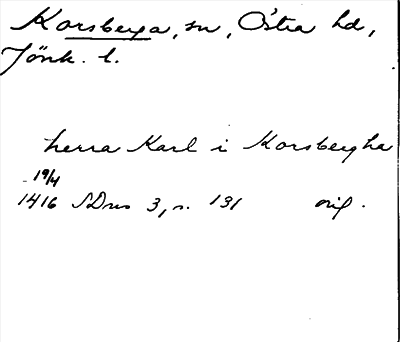 Korsberga, sn, Östra hd,
Jönk. l.
herra Karl i Korsbergha
19/4
1416 SDns 3, s. 131 orig.